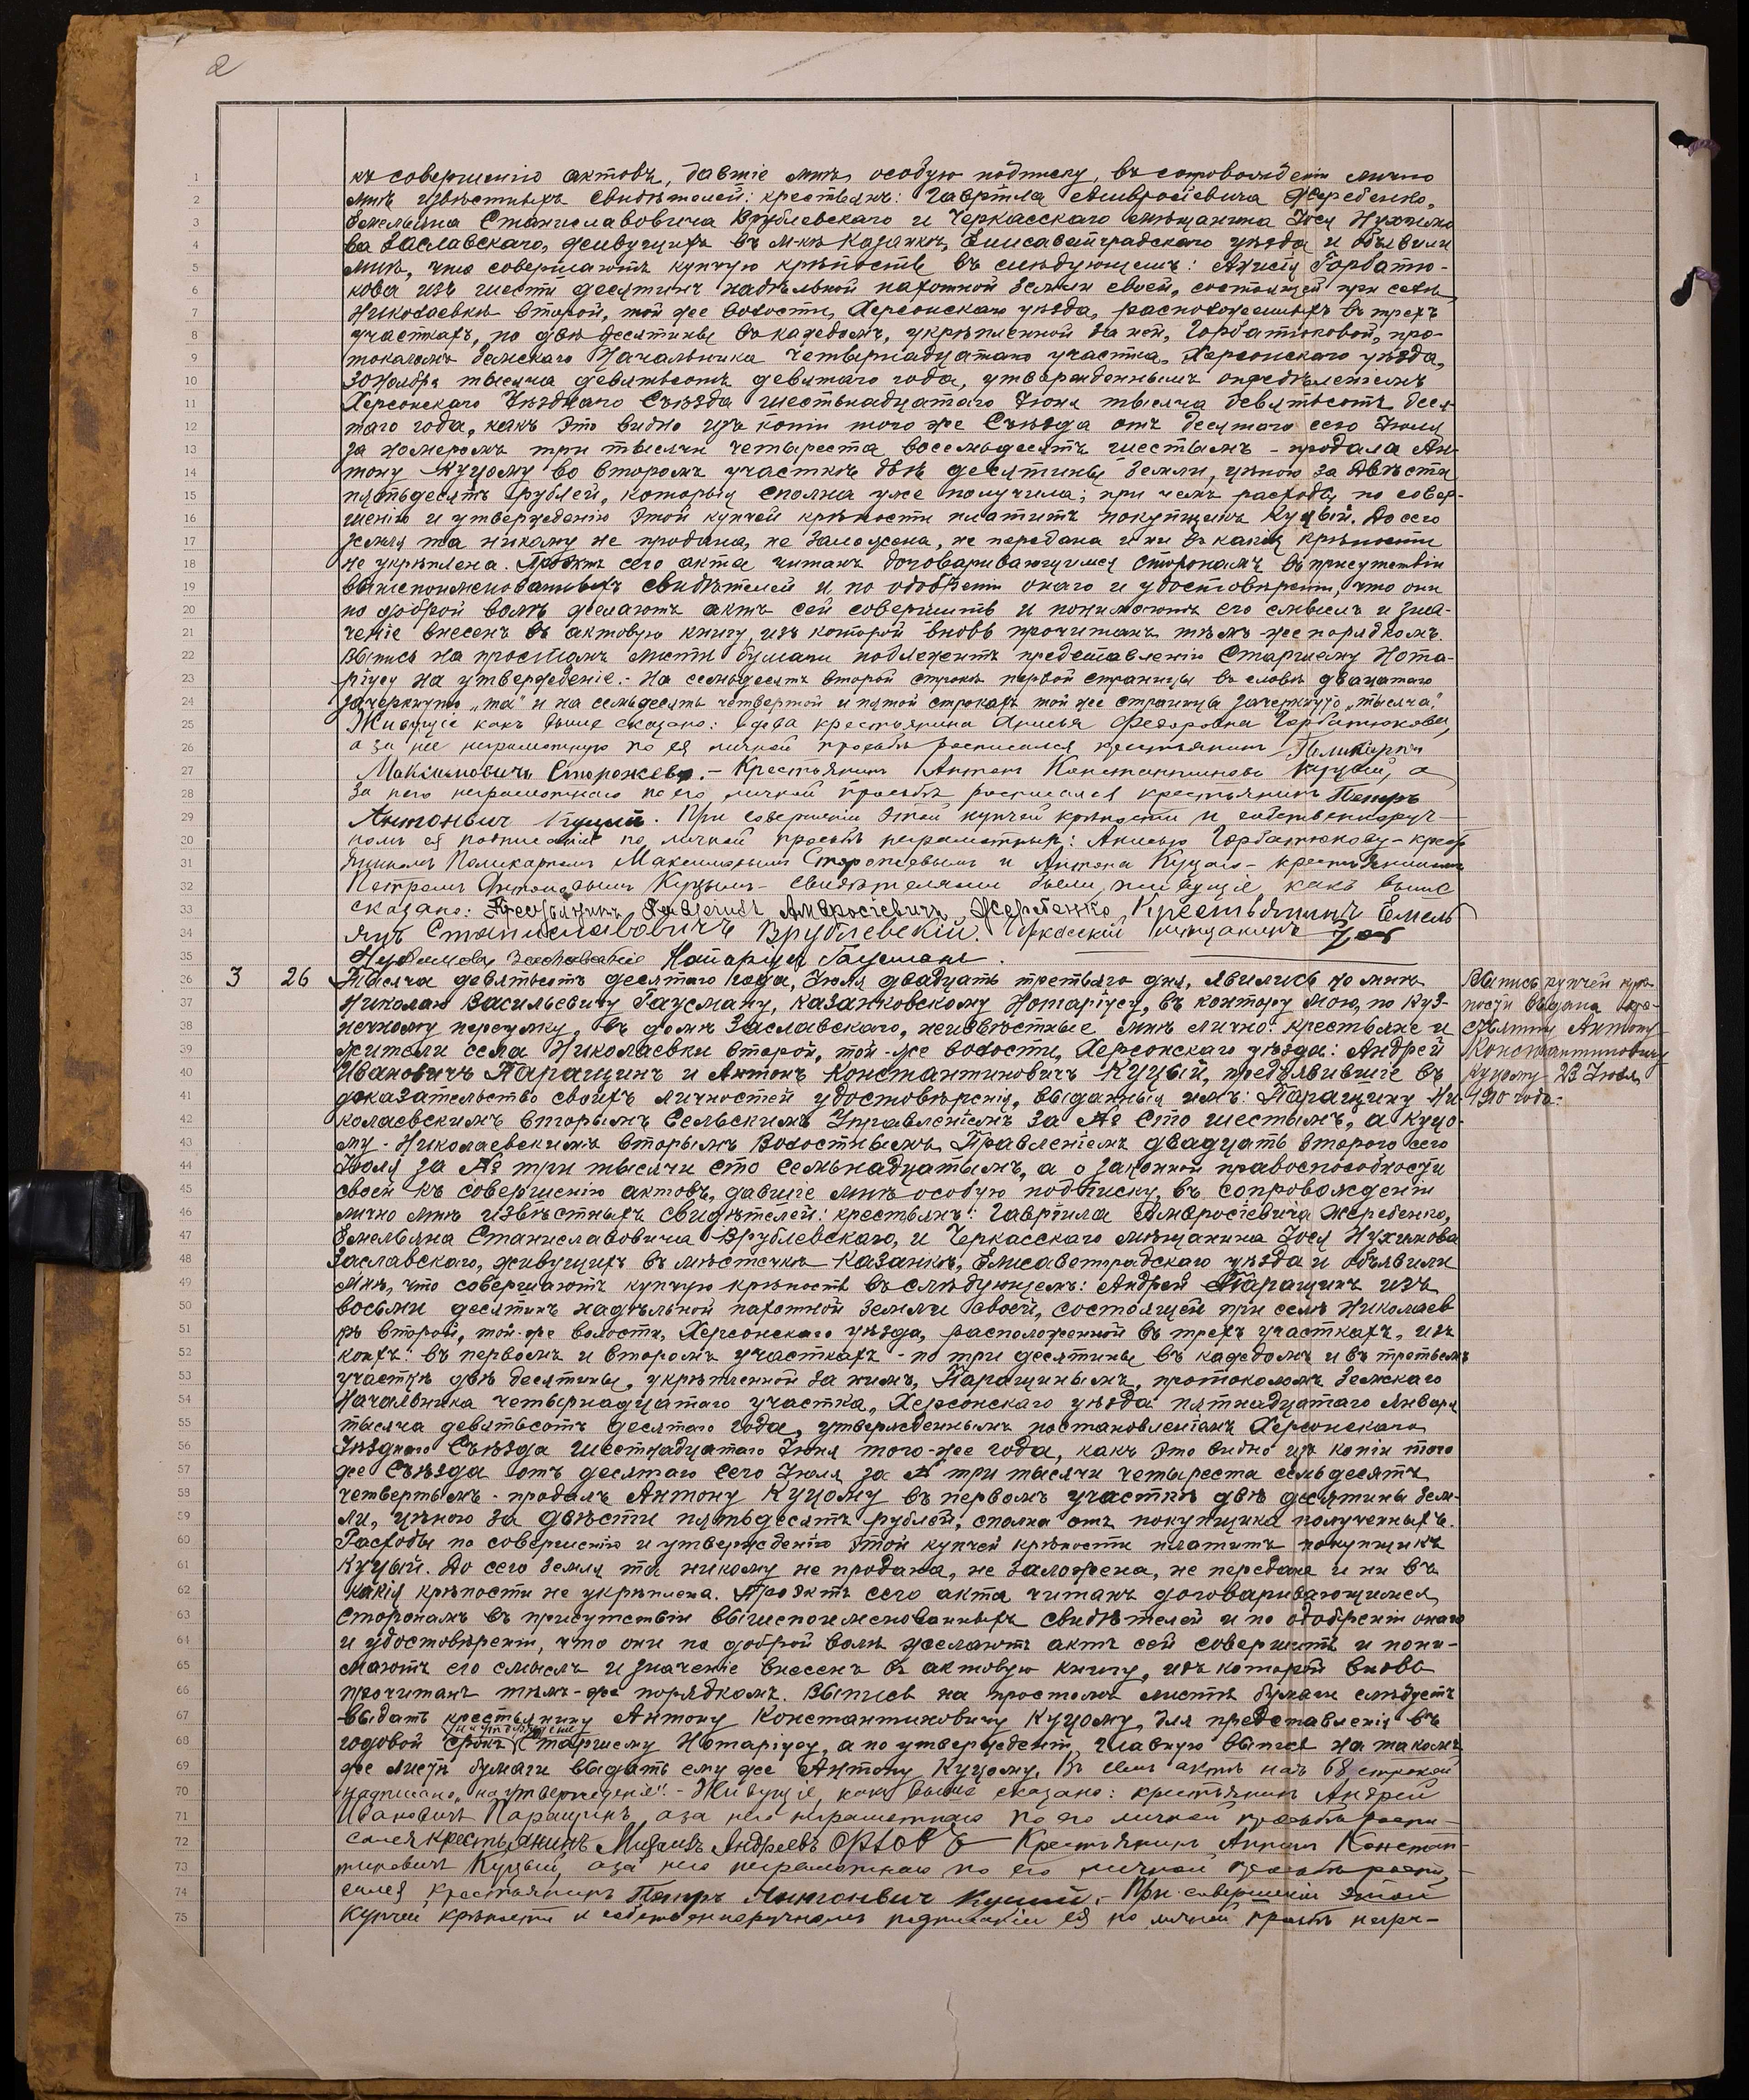 2
1 къ совершенію актовъ, давшіе мнѣ особую подписку, въ сопровожденіи лично
2 мнѣ извѣстныхъ свидѣтелей: крестьянъ: Гавріила Амвросіевича Жеребенко,
3 Емельяна Станиславовича Врублевскаго и Черкасскаго мѣщанина Іося Нухимо
4 ва Заславскаго, живущихъ въ м-кѣ Казанкѣ, Елисаветградскаго уѣзда и объявили
5 мнѣ, что совершаютъ купчую крѣпость въ слѣдующемъ: Анисія Горбатю-
6 кова изъ шести десятинъ надѣльной пахотной земли своей, состоящей при селѣ
7 Николаевкѣ второй, той же волости, Херсонскаго уѣзда, расположенныхъ въ трехъ
8 участкахъ, по двѣ десятины въ каждомъ, укрѣпленной за ней, Горбатюковой, про-
9 токоломъ Земскаго Начальника четырнадцатаго участка, Херсонскаго уѣзда,
10 30 Ноября тысяча девятьсотъ девятаго года, утвержденнымъ опредѣленіемъ
11 Херсонскаго Уѣзднаго Съѣзда шестьнадцатаго Іюня тысяча девятьсотъ деся
12 таго года, какъ это видно изъ копіи того же Съѣзда отъ десятаго сего Іюля
13 за номеромъ три тысячи четыреста восемьдесятъ шестымъ - продала Ан-
14 тону Куцому во второмъ участкѣ двѣ десятины земли, цѣною за двѣсти
15 пятьдесятъ рублей, которыя сполна уже получила; при чемъ расходы по совер-
16 шенію и утвержденію этой купчей крѣпости платитъ покупщикъ Куцый. До сего
17 земля та никому не продана, не заложена, не передана и ни въ какія крѣпости
18 не укрѣплена. Проэктъ сего акта читанъ договаривающимся сторонамъ въ присутствіи
19 вышепоименованныхъ свидѣтелей и по одобреніи онаго и удостовѣреніи, что они
20 по доброй волѣ желаютъ актъ сей совершить и понимаютъ его смыслъ и зна-
21 ченіе внесенъ въ актовую книгу, изъ которой вновь прочитанъ тѣмъ-же порядкомъ.
22 Выпись на простомъ листѣ бумаги подлежитъ представленію Старшему Нота-
23 ріусу на утвержденіе.- На семьдесятъ второй строкѣ первой страницы въ словѣ двацатаго
24 зачеркнуто „та" и на семьдесятъ четвертой и пятой строкахъ той же страницы зачеркнуто „тысяча".
25 Живущіе какъ выше сказано: вдова крестьянина Анисья Федоровна Горбатюкова,
26 а за нее неграмотную по ея личной просьбѣ росписался крестьянинъ Поликарпъ
27 Максимовичъ Сторожевъ.- Крестьянинъ Антонъ Константиновъ Куцый, а
28 за него неграмотнаго по его личной просьбѣ росписался крестьянинъ Петръ
29 Антонович Куций. При совершеніи этой купчей крѣпости и собственноруч-
30 номъ ея подписаніи по личной просьбѣ неграмотныхъ: Анисью Горбатюкову - крест
31 яниномъ Поликарпомъ Максимовымъ Сторожевымъ и Антона Куцаго - крестьяниномъ
32 Петромъ Антоновымъ Куцымъ - свидѣтелями были, живущіе какъ выше
33 сказано: Крестьянинъ Гавріилъ Амвросіевичъ Жеребенко Крестьянинъ Емель
34 янъ Станиславовичъ Врублевскій. Черкасскій мѣщанинъ Іось
35 Нухимовъ Заславскій Нотаріусъ Гаусманъ.
3 26
36 Тысяча девятьсотъ десятаго года, Іюля двадцать третьяго дня, явились ко мнѣ
37 Николаю Васильевичу Гаусману, Казанковскому Нотаріусу, въ контору мою, по Куз-
38 нечному переулку, въ домѣ Заславскаго, неизвѣстные мнѣ лично: крестьяне и
39 жители села Николаевки второй, той-же волости, Херсонскаго уѣзда: Андрей
40 Ивановичъ Паращинъ и Антонъ Константиновичъ Куцый, предъявившіе въ
41 доказательство своихъ личностей удостовѣренія, выданныя имъ: Паращину Ни-
42 колаевскимъ вторымъ Сельскимъ Управленіемъ за № сто шестымъ, а Куцо-
43 му - Николаевскимъ вторымъ Волостнымъ Правленіемъ двадцать второго сего
44 Іюля за № три тысячи сто семьнадцатымъ, а о законной правоспособности
45 своей къ совершенію актовъ, давшіе мнѣ особую подписку, въ сопровожденіи
46 лично мнѣ извѣстныхъ свидѣтелей: крестьянъ: Гавріила Амвросіевича Жеребенко,
47 Емельяна Станиславовича Врублевскаго, и Черкасскаго мѣщанина Іося Нухимова
48 Заславскаго, живущихъ въ мѣстечкѣ Казанкѣ, Елисаветградскаго уѣзда и объявили
49 мнѣ, что совершаютъ купчую крѣпость въ слѣдующемъ: Андрей Паращинъ изъ
50 восьми десятинъ надѣльной пахотной земли своей, состоящей при селѣ Николаев
51 кѣ второй, той-же волости, Херсонскаго уѣзда, расположенной въ трехъ участкахъ, изъ
52 коихъ: въ первомъ и второмъ участкахъ - по три десятины въ каждомъ и въ третьемъ
53 участкѣ двѣ десятины, укрѣпленной за нимъ, Паращинымъ, протоколомъ Земскаго
54 Начальника четырнадцатаго участка, Херсонскаго уѣзда пятнадцатаго Января
55 тысяча девятьсотъ десятаго года, утвержденнымъ постановленіемъ Херсонскаго
56 Уѣзднаго Съѣзда шестнадцатаго Іюня того-же года, какъ это видно изъ копіи того
57 же Съѣзда отъ десятаго сего Іюля за № три тысячи четыреста семьдесятъ
58 четвертымъ - продалъ Антону Куцому въ первомъ участкѣ двѣ десятины зем-
59 ли, цѣною за двѣсти пятьдесятъ рублей, сполна отъ покупщика полученныхъ.
60 Расходы по совершенію и утвержденію этой купчей крѣпости платитъ покупщикъ
61 Куцый. До сего земля та никому не продана, не заложена, не передана и ни въ
62 какія крѣпости не укрѣплена. Проэктъ сего акта читанъ договаривающимся
63 сторонамъ въ присутствіи вышепоименованныхъ свидѣтелей и по одобреніи онаго
64 и удостовѣреніи, что они по доброй волѣ желаютъ актъ сей совершить и пони-
65 маютъ его смыслъ и значеніе внесенъ въ актовую книгу, изъ которой вновь
66 прочитанъ тѣмъ-же порядкомъ. Выпись на простомъ листѣ бумаги слѣдуетъ
67 выдать крестьянину Антону Константиновичу Куцому, для представленія въ
на утвержденіе
68 годовой срокъ Старшему Нотаріусу, а по утвержденіи, главную выпись на такомъ
69 же листѣ бумаги выдать ему же Антону Куцому. Въ семъ актѣ надъ 68 строкой
70 надписано „на утвержденіе".- Живущіе, какъ выше сказано: крестьянинъ Андрей
71 Ивановичъ Паращинъ, а за него неграмотнаго по его личной просьбѣ роспи-
72 сался крестьянинъ Михаилъ Андреевъ Орловъ Крестьянинъ Антонъ Констан-
73 тиновичъ Куцый, а за него неграмотнаго по его личной просьбѣ роспи-
74 сался крестьянинъ Петръ Антонович Куций.- При совершеніи этой
75 купчей крѣпости и собственноручномъ подписаніи ея по личной просьбѣ негра-
Выпись купчей крѣ-
пости выдана кре-
стьянину Антону
Константиновичу
Куцому 23 Іюля
1910 года.